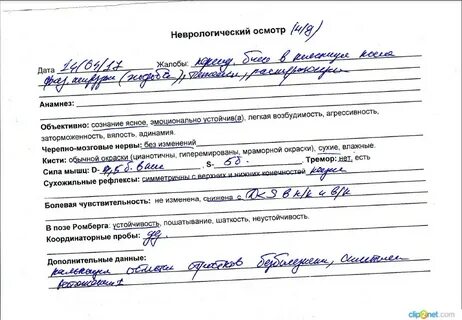 Неврологический осмотр (н/д)
Дата 14/03/17 Жалобы: период. боли в пояснице после
физ. нагрузки (ходьба),
Анамнез:
Объективно: сознание ясное, эмоционально устойчив(а), легкая возбудимость, агрессивность,
заторможенность, вялость, адинамия.
Черепно-мозговые нервы: без изменений
Кисти: обычной окраски (цианотичны, гиперемированы, мраморной окраски), сухие, влажные.
Сила мышц: D- 4,5 б. S- 5 б. Тремор: нет, есть
Сухожильные рефлексы: симметричны с верхних и нижних конечностей
Болевая чувствительность: не изменена, снижена - D<S в н/к и в/к
В позе Ромберга: устойчивость, пошатывание, шаткость, неустойчивость.
Координаторные пробы:
Дополнительные данные:
пальпация остистых отростков безболезненна,
clip2net.com